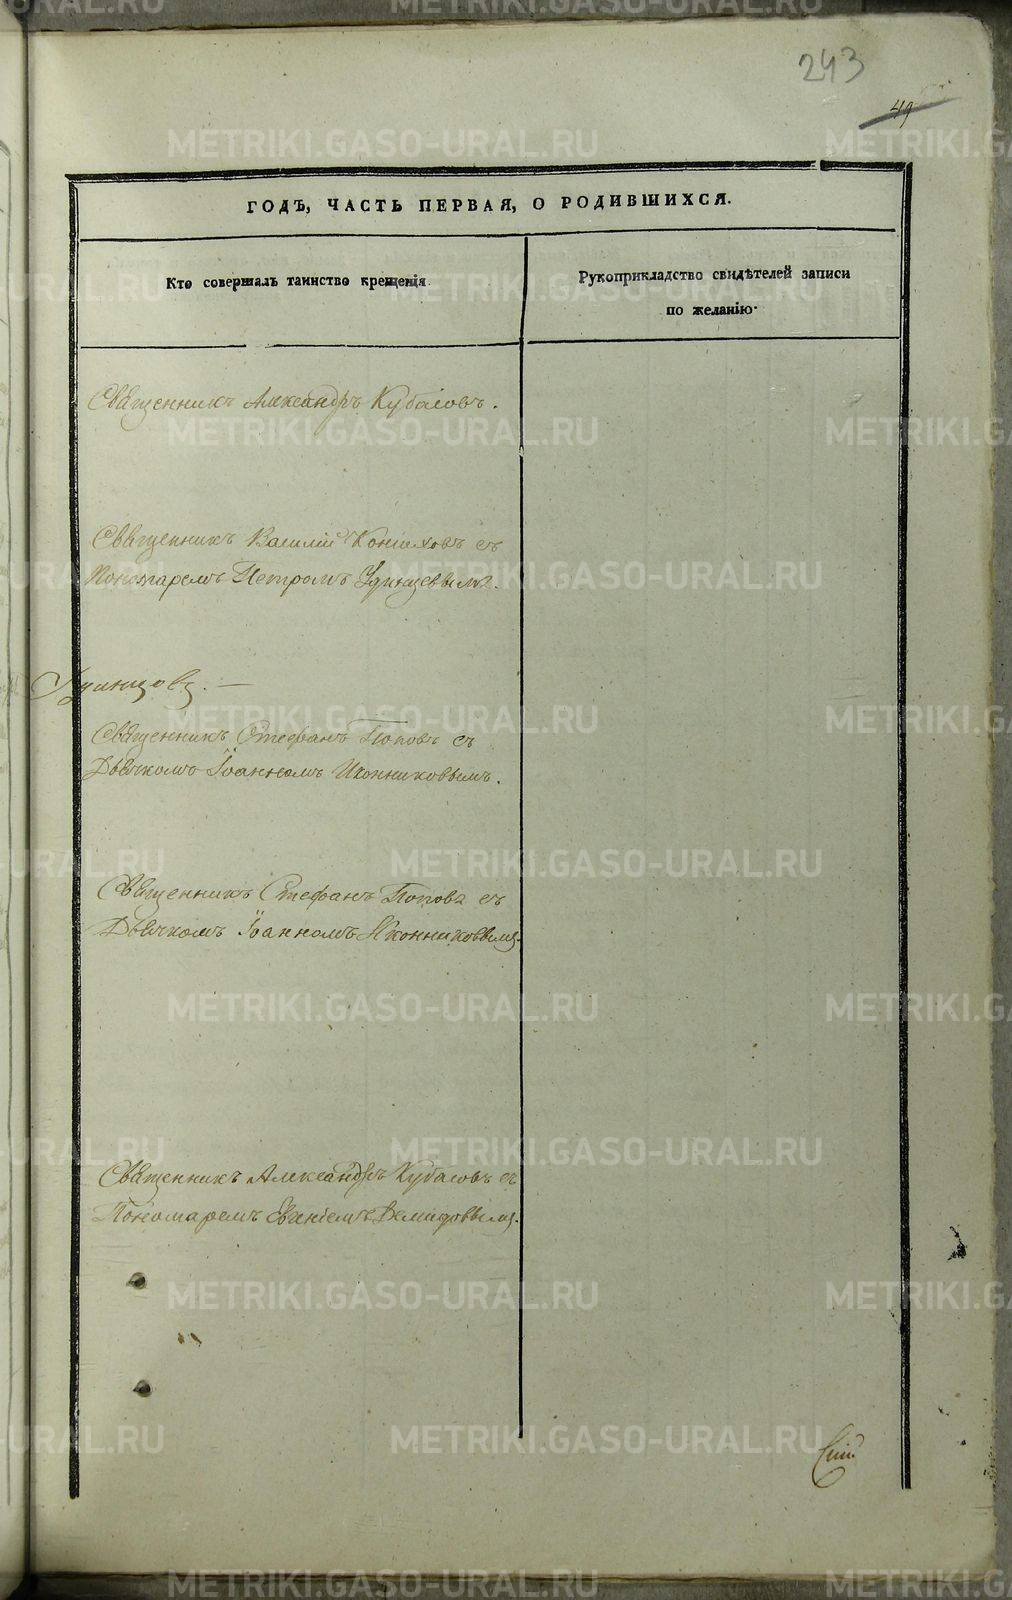 243
49
ГОДЪ, ЧАСТЬ ПЕРВАЯ, О РОДИВШИХСЯ.
Кто совершалъ таинство крещенія
Рукоприкладство свидѣтелей записи
по желанію.
Священникъ Александръ Кубасовъ.
Священникъ Василій Конюховъ съ
Пономаремъ Петромъ Удинцевымъ.
Священникъ Стефанъ Поповъ съ
Дьячкомъ Іоанномъ Иконниковымъ.
Священникъ Стефанъ Поповъ съ
Дьячкомъ Іоанномъ Иконниковымъ.
Священникъ Александръ Кубасовъ съ
Пономаремъ Евгеніемъ Демидовымъ.
METRIKI.GASO-URAL.RU